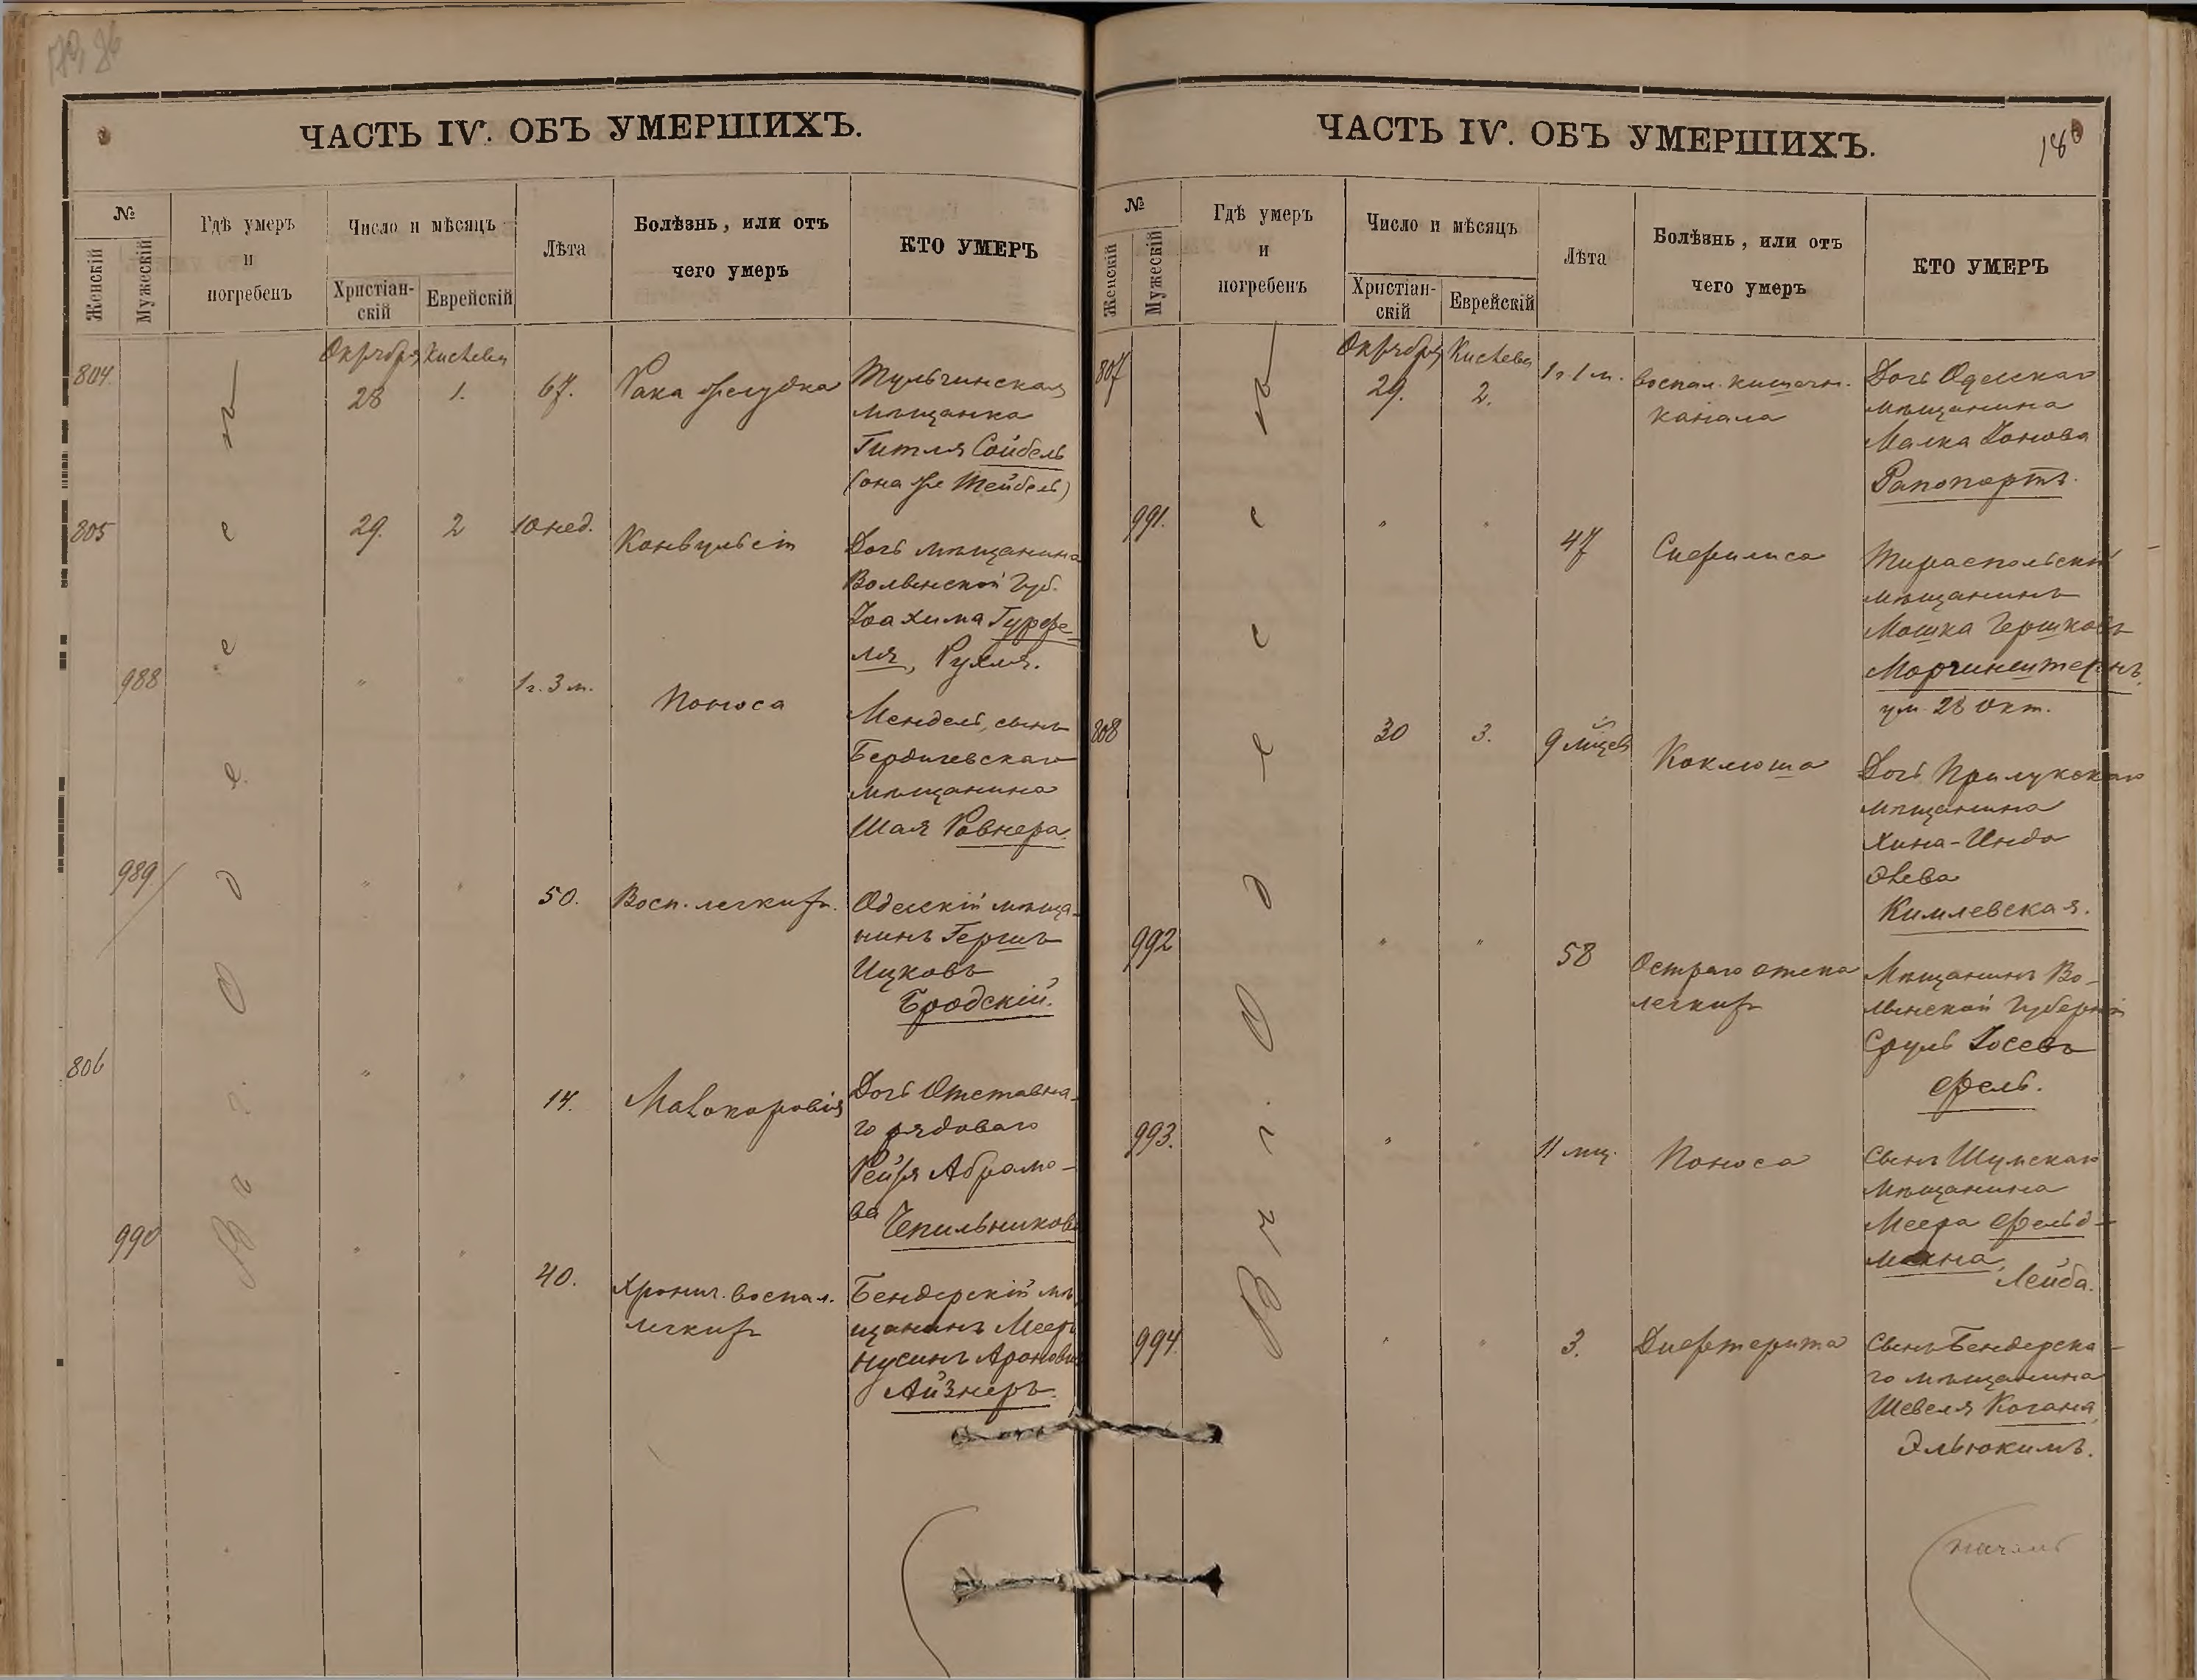 ЧАСТЬ IV. ОБЪ УМЕРШИХЪ.
№
Женскій
Мужескій
Гдѣ умеръ
и
погребенъ
Число и мѣсяцъ
Христіан-
скій
Еврейскій
Лѣта
Болѣзнь, или отъ
чего умеръ
КТО УМЕРЪ
Въ г. Одессѣ
804
Октября Кислева
28 1. 67. Рака желудка
Тульчинская
мѣщанка
Гитля Сойбель
(она же Шейбель)
805 29. 2 10 нед. Конвульсій
Дочь мѣщанина
Волынской Губ.
Іоахима Гурфе-
ля, Рухля.
988 " " 1 г. 3 м. Поноса
Мендель, сынъ
Бердичевскаго
мѣщанина
Шая Ровнера.
989 " " 50. Восп. легкихъ.
Одесскій мѣща-
нинъ Гершъ
Ицковъ
Бродскій.
806 " " 14.
Дочь Отставна-
го рядоваго
Рейзя Абрамо-
ва Чепильникова
990 " " 40. Хронич. воспал.
легкихъ
Бендерскій мѣ-
щанинъ Меер
Нусинъ Ароновичъ
Айзнеръ.
ЧАСТЬ IV. ОБЪ УМЕРШИХЪ.
180
№
Женскій
Мужескій
Гдѣ умеръ
и
погребенъ
Число и мѣсяцъ
Христіан-
скій
Еврейскій
Лѣта
Болѣзнь, или отъ
чего умеръ
КТО УМЕРЪ
Въ г. Одессѣ
Октября Кислева
807 29. 2. 1 г. 1 м. воспал. кишечн.
канала
Дочь Одесскаго
мѣщанина
Малка Іонова
Рапопортъ.
991. " " 47 Сифилиса
Тираспольскій
мѣщанинъ
Мошка Гершковъ
Моргинштернъ,
ум. 28 Окт.
808 30 3. 9 мѣсцев Коклюша
Дочь Прилукскаго
мѣщанина
Хина-Инда
Кимлевская.
992 " " 58 Остраго отека
легкихъ
Мѣщанинъ Во-
лынской Губерніи
Сруль Іосевъ
Фель.
993. " " 11 мц. Поноса
Сынъ Шумскаго
мѣщанина
Меера Фельд-
мана,
Лейба.
994. " " 3. Дифтерита
Сынъ Бендерска-
го мѣщанина
Шевеля Когана,
Эльюкимъ.